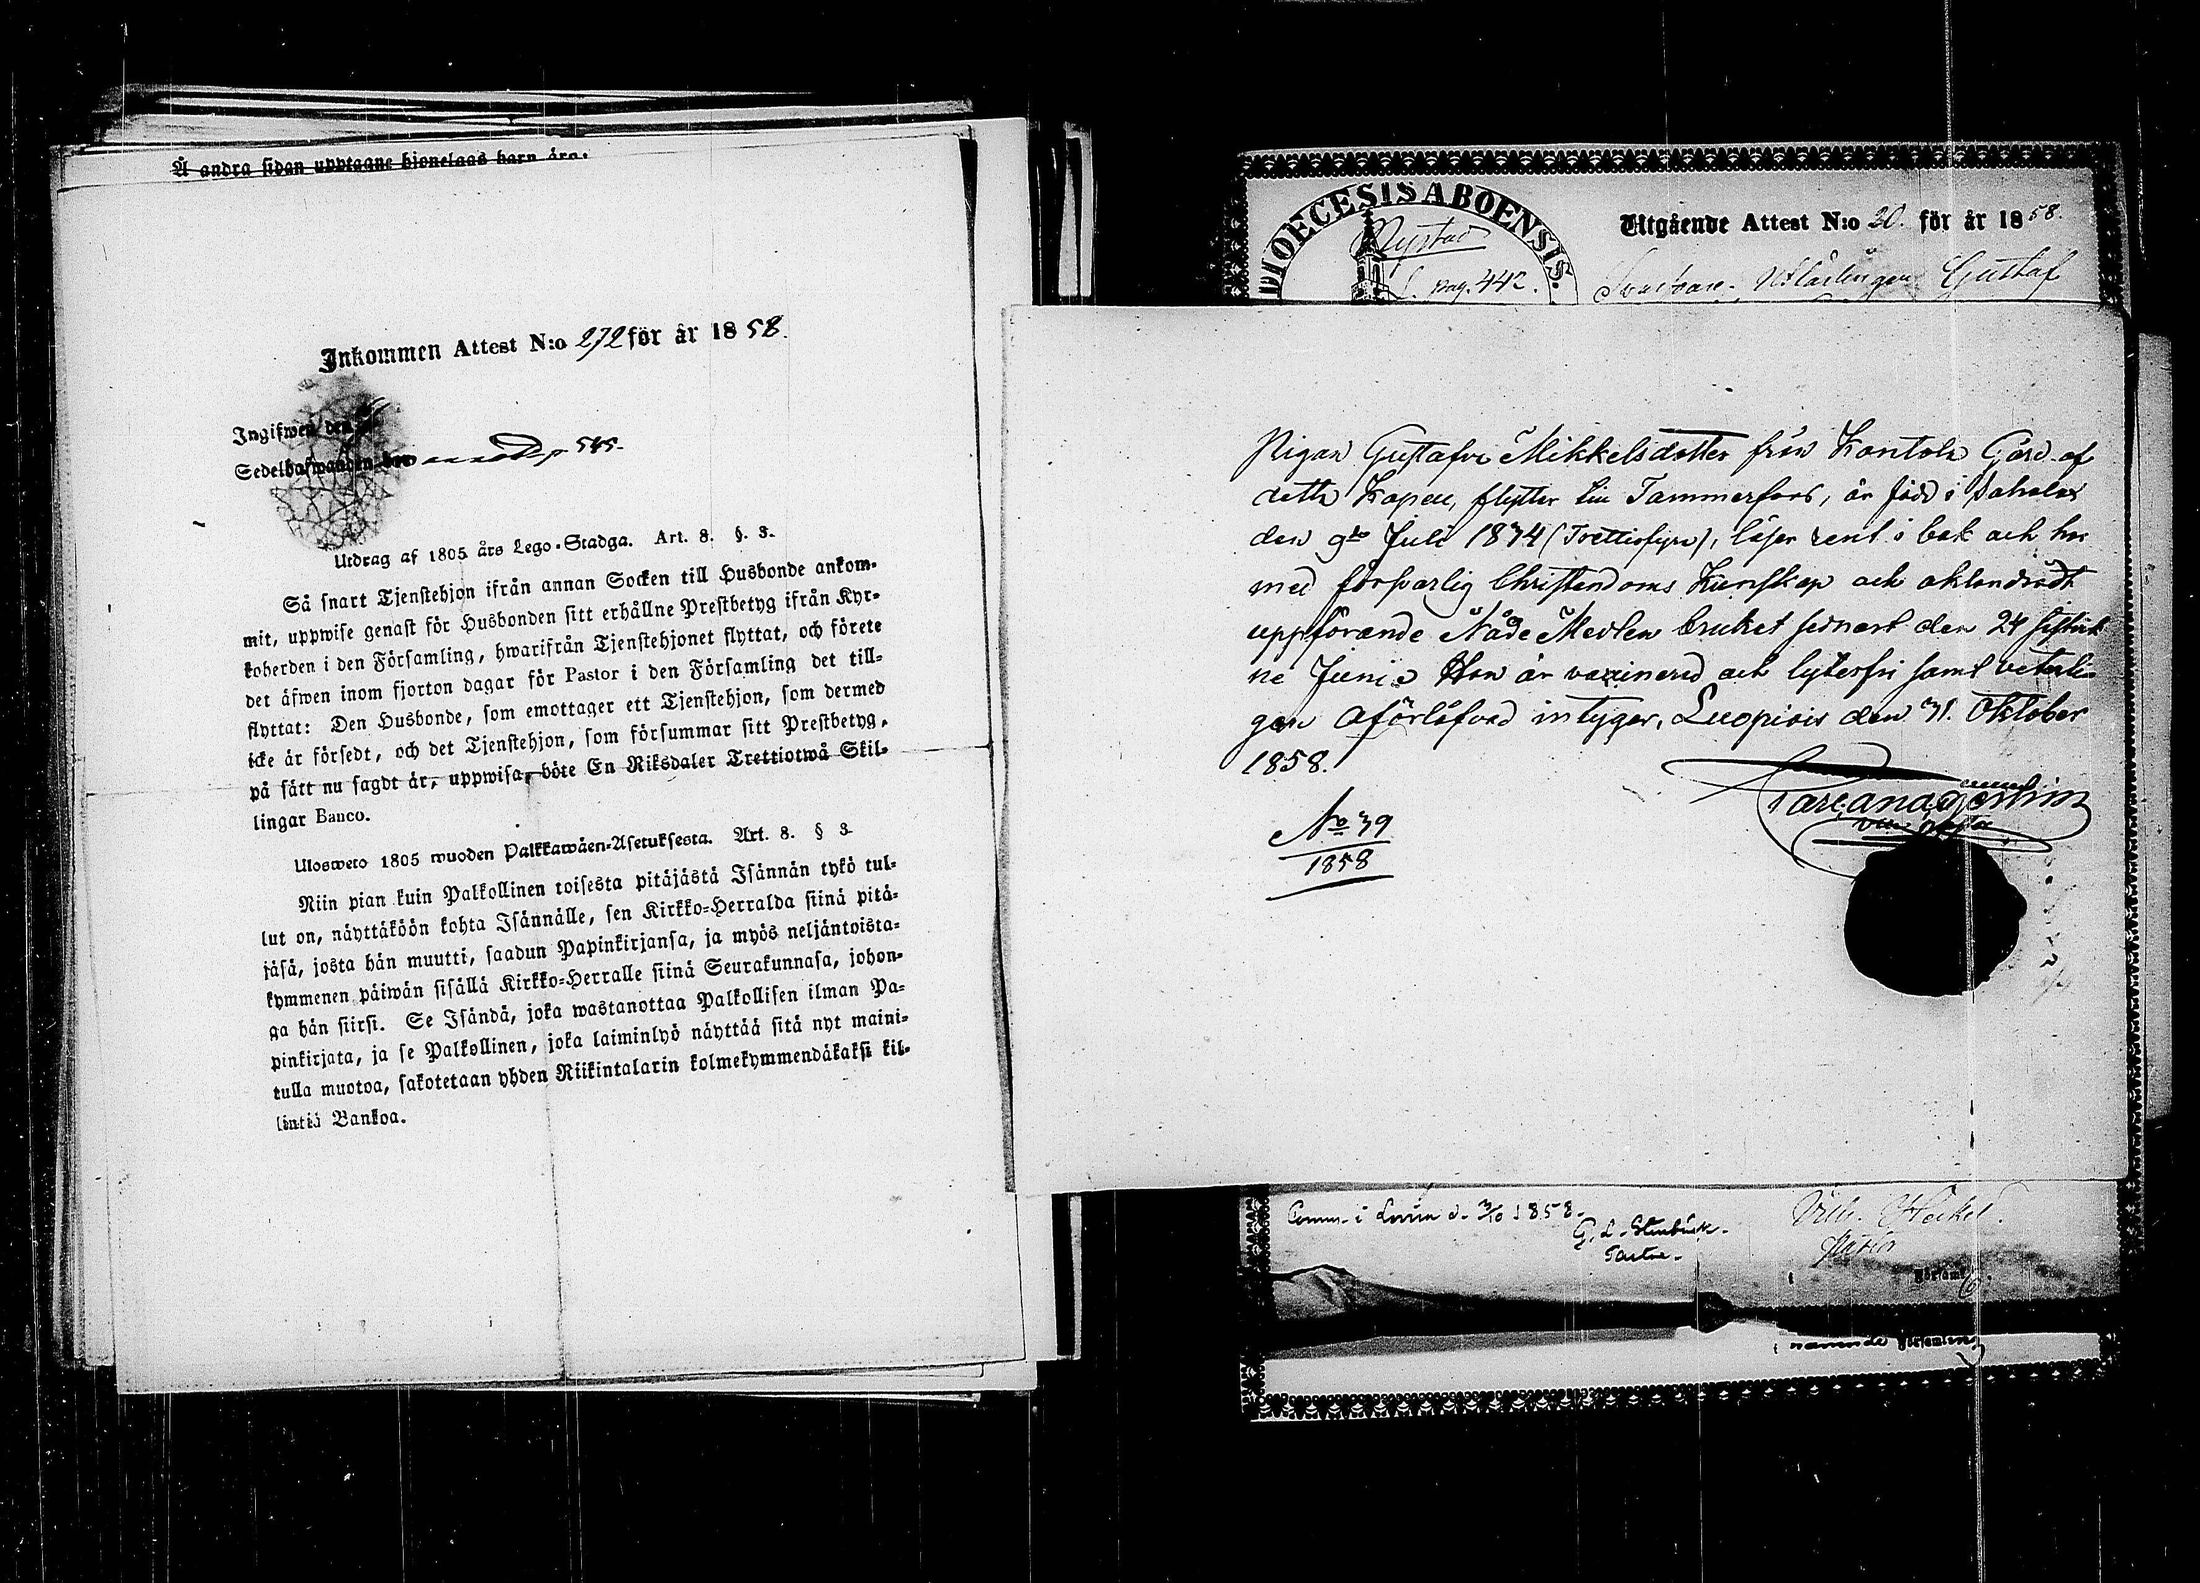 Å andra sidan upptagne hjonelags barn äro:
Inkommen Attest N:o 272 för år 1858.
Ingifwen den
Sedelhafwanden p 545.
Utdrag af 1805 års Lego-Stadga. Art. 8. §. 3.
Så snart Tjenstehjon ifrån annan Socken till Husbonde ankom-
mit, uppwise genast för Husbonden sitt erhållne Prestbetyg ifrån Kyr-
koherden i den Församling, hwarifrån Tjenstehjonet flyttat, och förete
det äfwen inom fjorton dagar för Pastor i den Församling det till-
flyttat: Den Husbonde, som emottager ett Tjenstehjon, som dermed
icke är försedt, och det Tjenstehjon, som försummar sitt Prestbetyg,
på sätt nu sagdt är, uppwisa, böte En Riksdaler Trettiotwå Skil-
lingar Banco.
Ulosweto 1805 wuoden Palkkawäen-Asetuksesta. Art. 8. § 3.
Niin pian kuin Palkollinen toisesta pitäjästä Isännän tykö tul-
lut on, näyttäköön kohta Isännälle, sen Kirkko-Herralda siinä pitä-
jäsä, josta hän muutti, saadun Papinkirjansa, ja myös neljäntoista-
kymmenen päiwän sisällä Kirkko-Herralle siinä Seurakunnasa, johon-
ga hän siirsi. Se Isändä, joka wastanottaa Palkollisen ilman Pa-
pinkirjata, ja se Palkollinen, joka laiminlyö näyttää sitä nyt maini-
tulla muotoa, sakotetaan yhden Riikintalarin kolmekymmendäkaksi kil-
lintiä Bankoa.
DIOECESIS ABOENSIS.
Nystad
pag. 442.
Utgående Attest N:o 20. för år 1858.
Gustaf
Pigan Gustafva Mikkelsdotter från Kantola Gård af
detta Kapell, flyttar till Tammerfors, är född i Sahalax
den 9de Juli 1834 (Trettiofyra), läser rent i bok och har
med försvarlig Christendoms Kunskap och oklandradt
uppförande Nåde Medlen brukat sednast den 24 sistlid-
ne Junii. Hon är vaccinerad och lyterfri samt veterli-
gen oförlofvad intygar, Luopiois den 31. Oktober
1858.
No 39
1858
Comm. i Lovisa d. 3/10 1858.
G. L. Stenbäck.
Pastor.
Vilh. Heikel.
Pastor
i
Församl.
i nämnde Församling